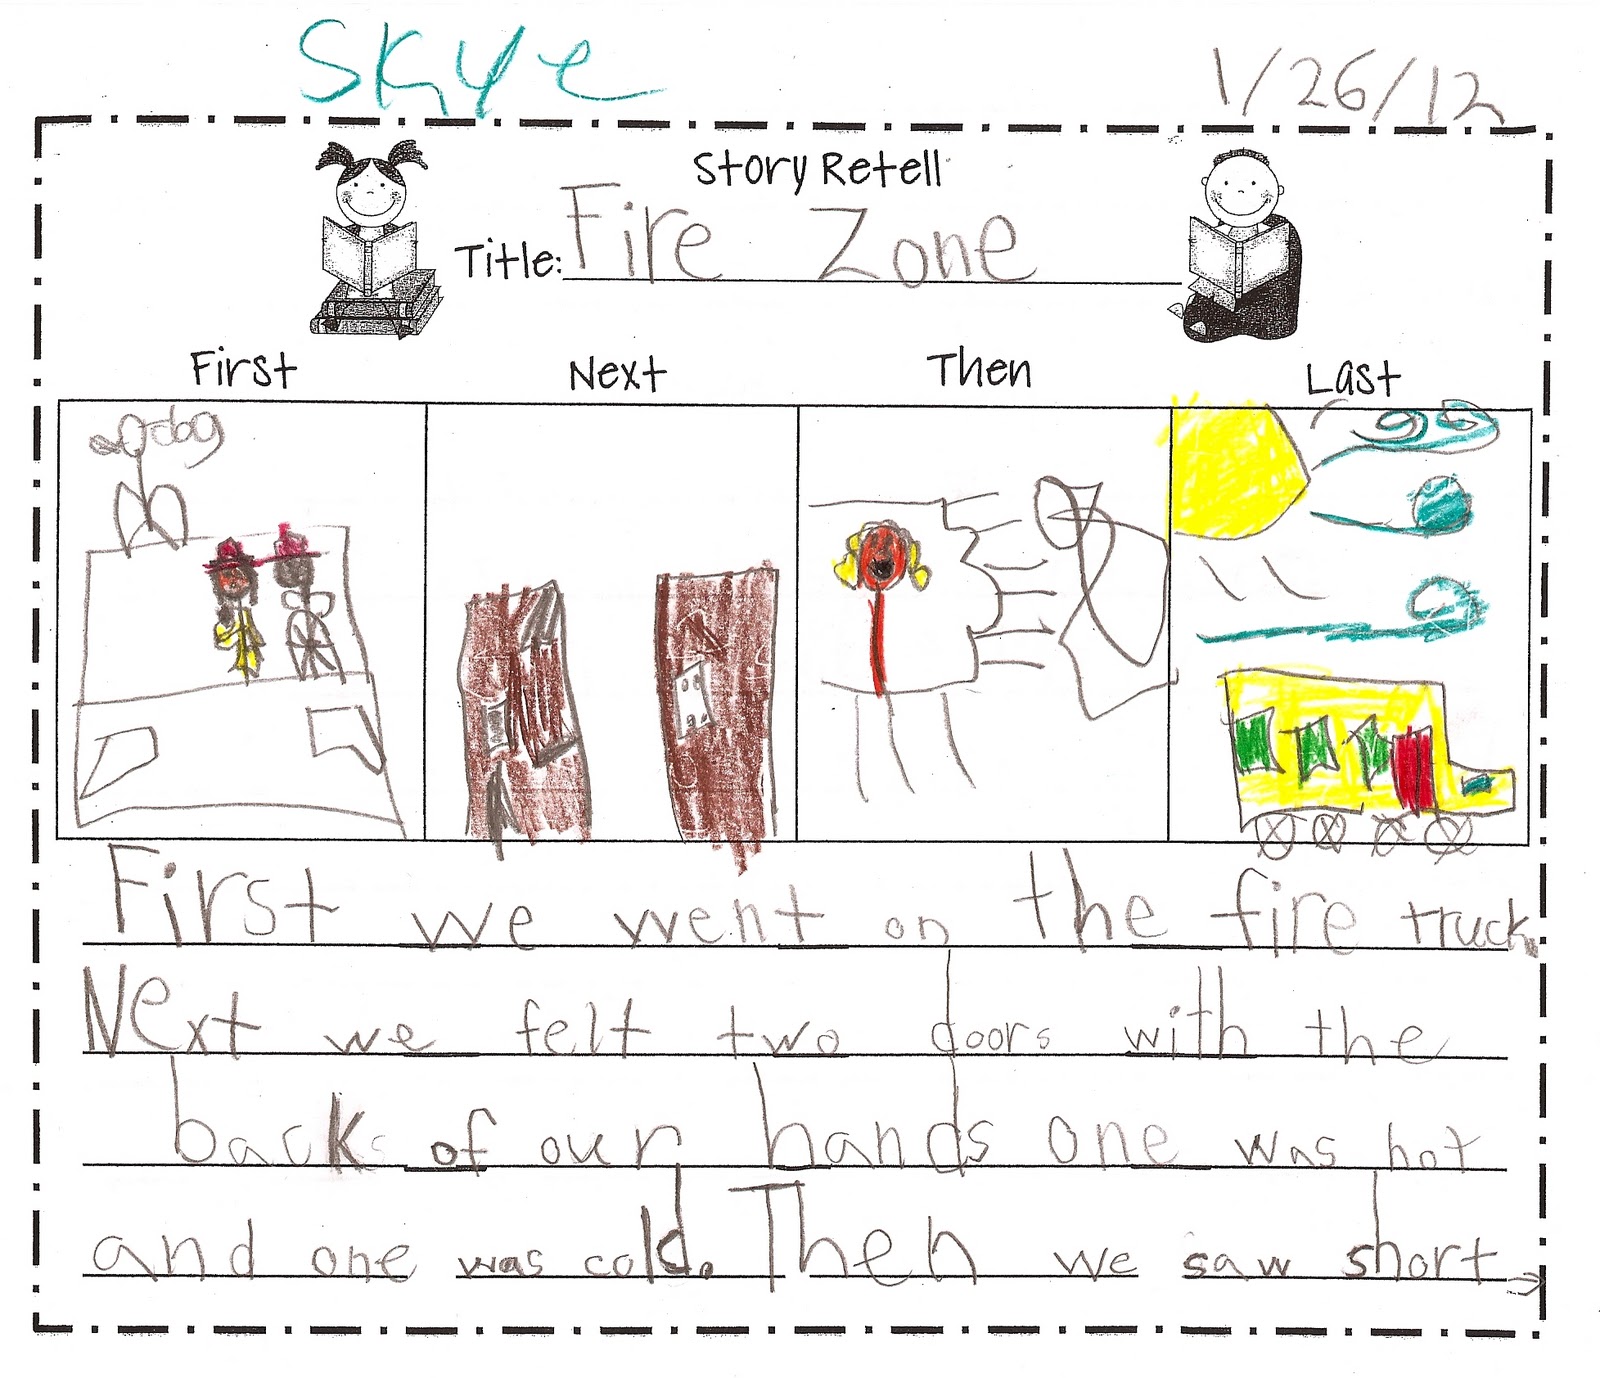 Skye 1/26/12
Story Retell
Title: Fire Zone
First Next Then Last
dog
First we went on the fire truck.
Next we felt two doors with the
backs of our hands one was hot
and one was cold. Then we saw short →